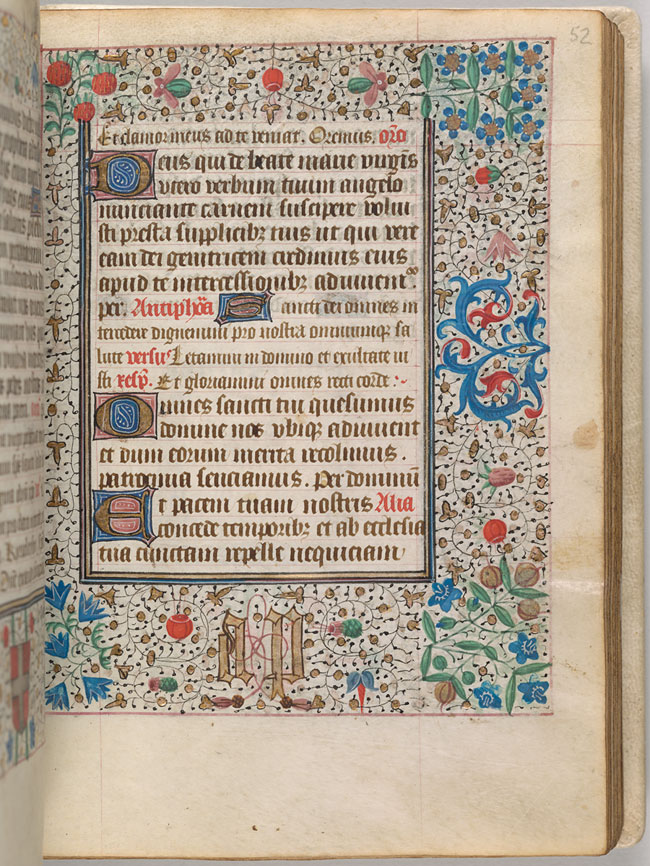 52
Et clamor meus ad te veniat. Oremus. oro
Deus qui de beate marie virgis
utero verbum tuum angelo
nunciante carnem suscipere volui
sti presta supplicibz tuis ut qui vere
eam dei genitricem credimus eius
apud te intercessionibz adiuvent
per. Antiphoa Sancti dei omnes in
tercedere dignemini pro nostra omniumqz sa
lute versus Letamini in domino et exultate iu
sti resp. Et gloriamini omnes recti corde:
Omnes sancti tui quesumus
domine nos ubiqz adiuvent
et dum eorum merita recolimus.
patrocinia senciamus. Per dominum
Et pacem tuam nostris Alia
concede temporibz et ab ecclesia
tua cunctam repelle nequiciam